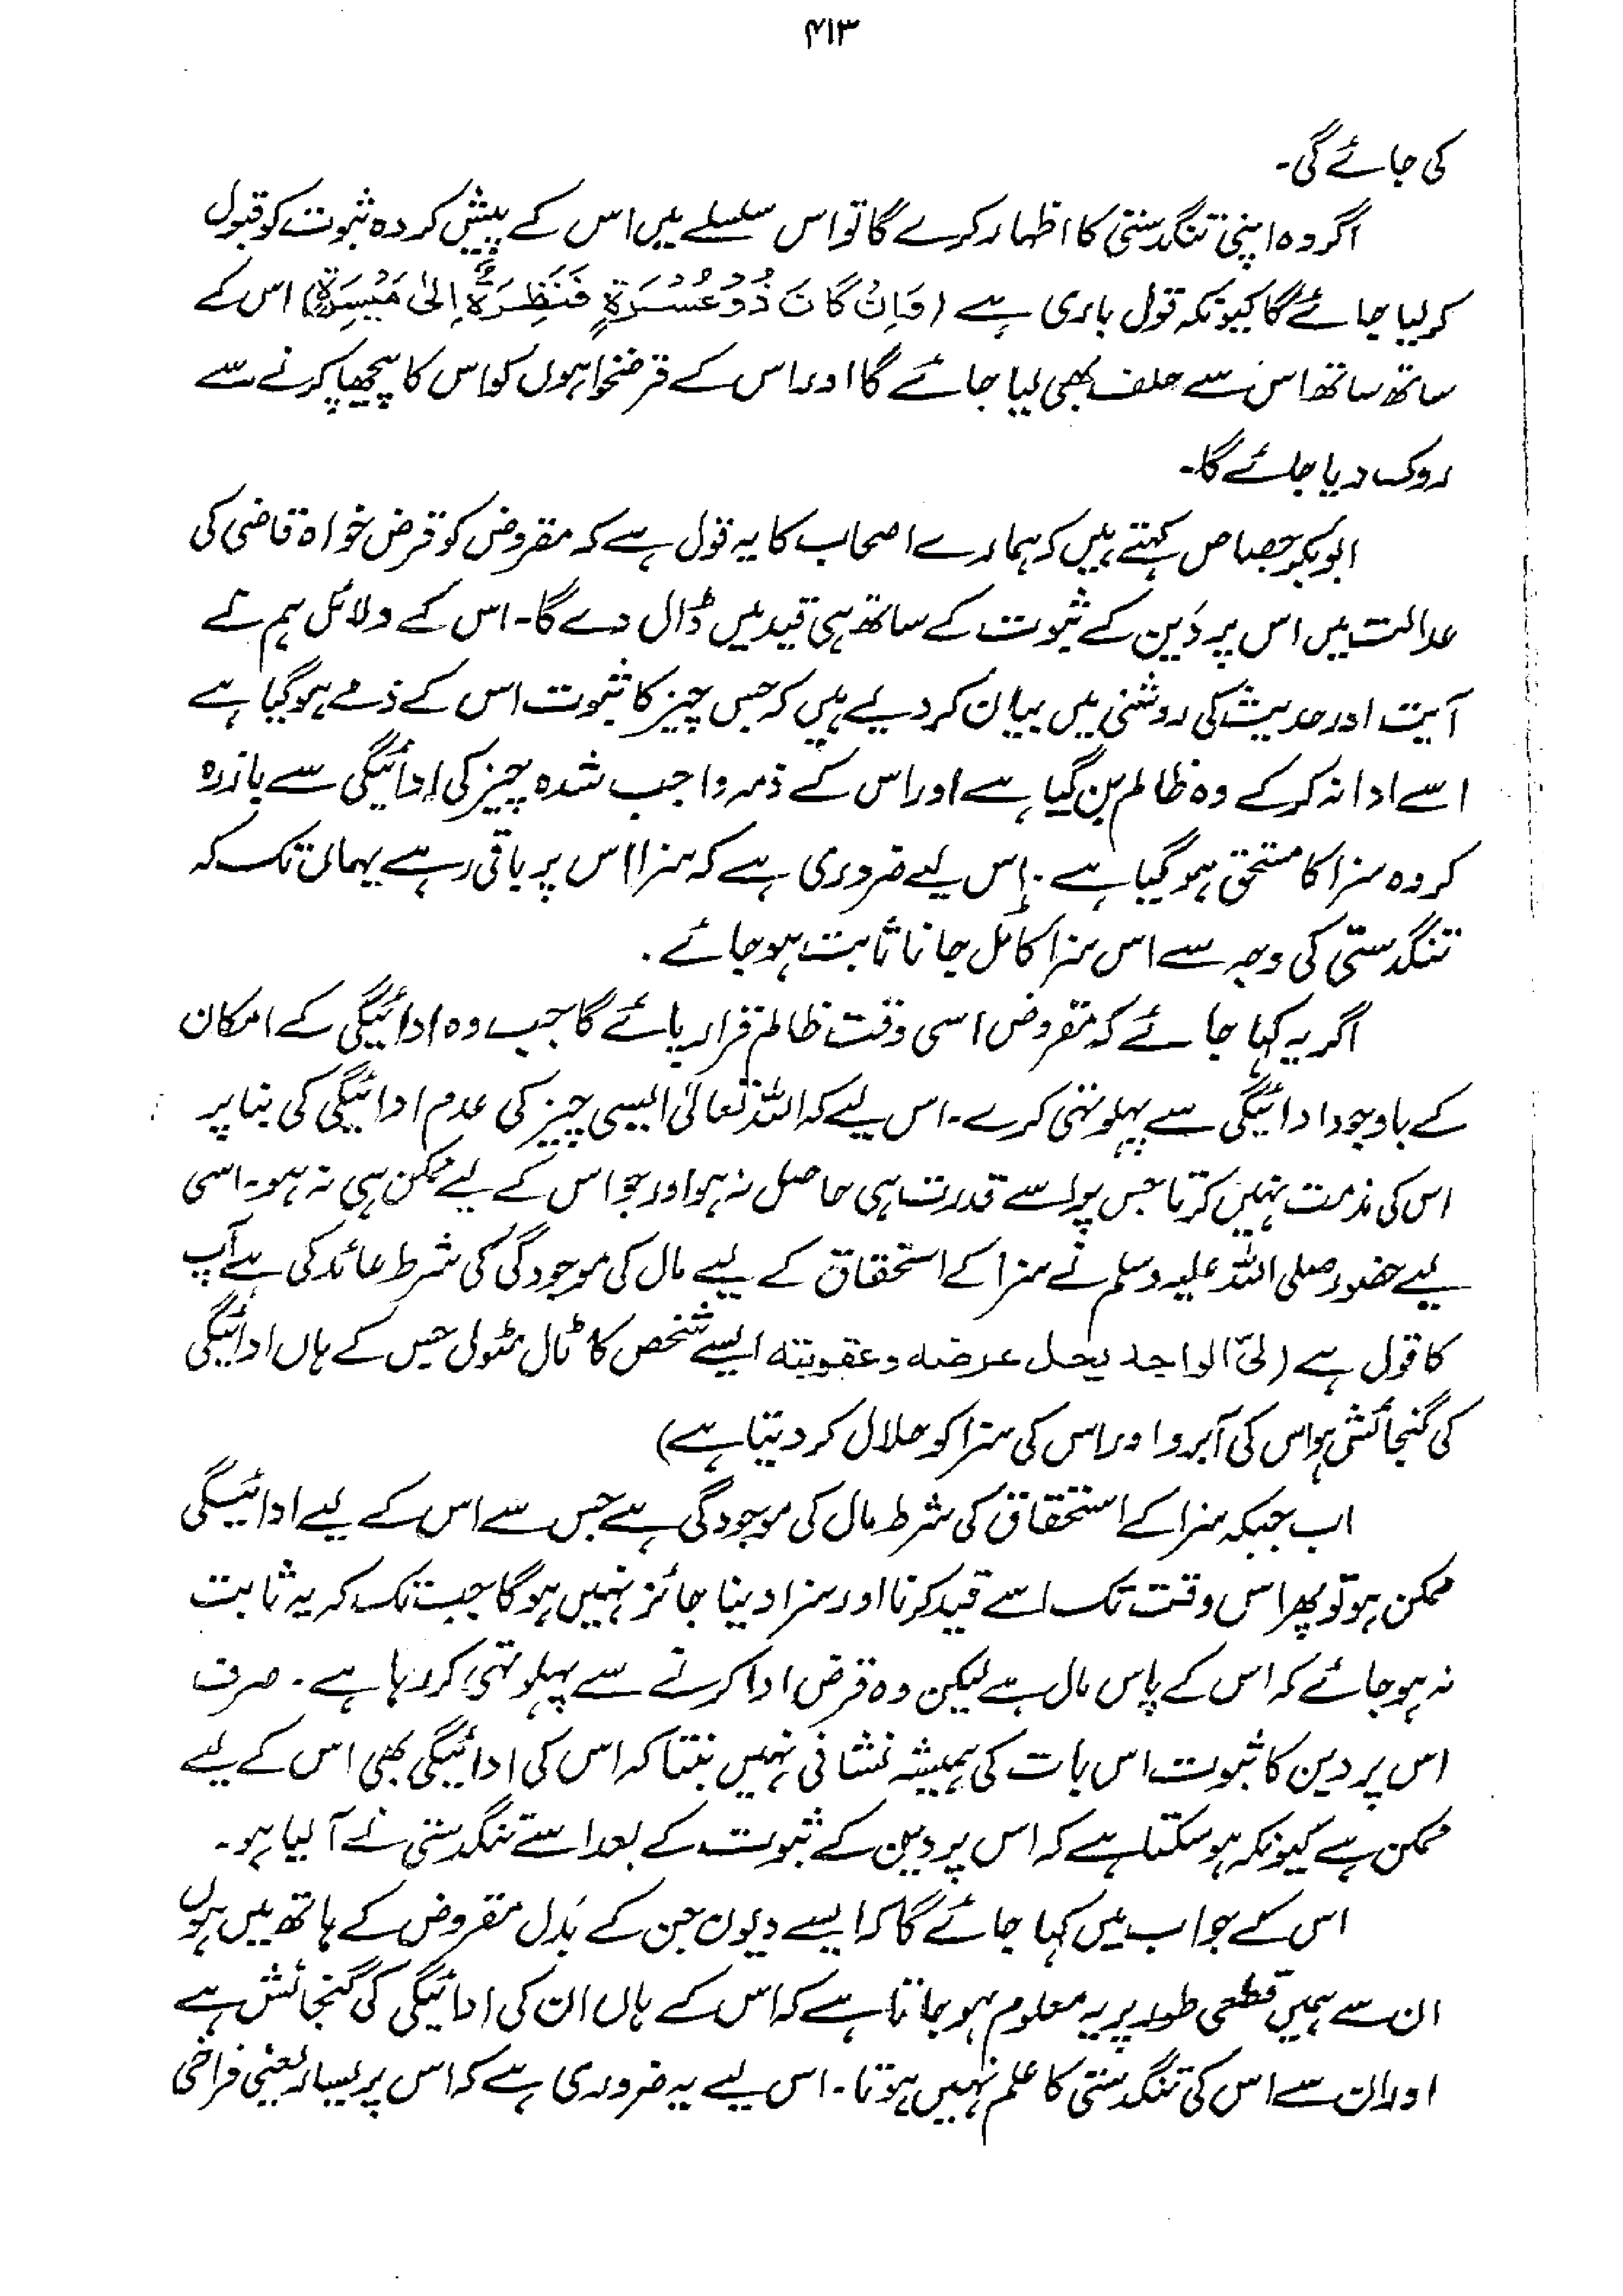 ۴۱۳
کی جائے گی۔
اگر وہ اپنی تنگدستی کا اظہار کرے گا تو اس سلسلے میں اس کے پیش کردہ ثبوت کو قبول
کرلیا جائے گا کیونکہ قول باری ہے (وَاِنْ کَانَ ذُوْ عُسْرَۃٍ فَنَظِرَۃٌ اِلیٰ مَیْسَرَۃٍ) اس کے
ساتھ ساتھ اس سے حلف بھی لیا جائے گا اور اس کے قرضخواہوں کو اس کا پیچھا کرنے سے
روک دیا جائے گا۔
ابوبکر جصاص کہتے ہیں کہ ہمارے اصحاب کا یہ قول ہے کہ مقروض کو قرض خواہ قاضی کی
عدالت میں اس پر دَین کے ثبوت کے ساتھ ہی قید میں ڈال دے گا۔ اس کے دلائل ہم نے
آیت اور حدیث کی روشنی میں بیان کر دیے ہیں کہ جس چیز کا ثبوت اس کے ذمے ہوگیا ہے
اسے ادا نہ کرکے وہ ظالم بن گیا ہے اور اس کے ذمہ واجب شدہ چیز کی ادائیگی سے باز رہ
کر وہ سزا کا مستحق ہوگیا ہے۔ اس لیے ضروری ہے کہ سزا اس پر باقی رہے یہاں تک کہ
تنگدستی کی وجہ سے اس سزا کا ٹل جانا ثابت ہوجائے۔
اگر یہ کہا جائے کہ مقروض اسی وقت ظالم قرار پائے گا جب وہ ادائیگی کے امکان
کے باوجود ادائیگی سے پہلو تہی کرے۔ اس لیے کہ اللہ تعالیٰ ایسی چیز کی عدم ادائیگی کی بنا پر
اس کی مذمت نہیں کرتا جس پر اسے قدرت ہی حاصل نہ ہو اور جو اس کے لیے ممکن ہی نہ ہو۔ اسی
لیے حضور صلی اللہ علیہ وسلم نے سزا کے استحقاق کے لیے مال کی موجودگی کی شرط عائد کی ہے آپ
کا قول ہے (لیّ الواجد یحل عرضہ وعقوبتہ ایسے شخص کا ٹال مٹول جس کے ہاں ادائیگی
کی گنجائش ہو اس کی آبرو اور اس کی سزا کو حلال کر دیتا ہے)
اب جبکہ سزا کے استحقاق کی شرط مال کی موجودگی ہے جس سے اس کے لیے ادائیگی
ممکن ہو تو پھر اس وقت تک اسے قید کرنا اور سزا دینا جائز نہیں ہوگا جب تک کہ یہ ثابت
نہ ہو جائے کہ اس کے پاس مال ہے لیکن وہ قرض ادا کرنے سے پہلو تہی کر رہا ہے۔ صرف
اس پر دین کا ثبوت اس بات کی ہمیشہ نشانی نہیں بنتا کہ اس کی ادائیگی بھی اس کے لیے
ممکن ہے کیونکہ ہوسکتا ہے کہ اس پر دین کے ثبوت کے بعد اسے تنگدستی نے آلیا ہو۔
اس کے جواب میں کہا جائے گا کہ ایسے دیون جن کے بَدل مقروض کے ہاتھ میں ہوں
ان سے ہمیں قطعی طور پر یہ معلوم ہو جاتا ہے کہ اس کے ہاں ان کی ادائیگی کی گنجائش ہے
اور ان سے اس کی تنگدستی کا علم نہیں ہوتا۔ اس لیے یہ ضروری ہے کہ اس پر یسار یعنی فراخی